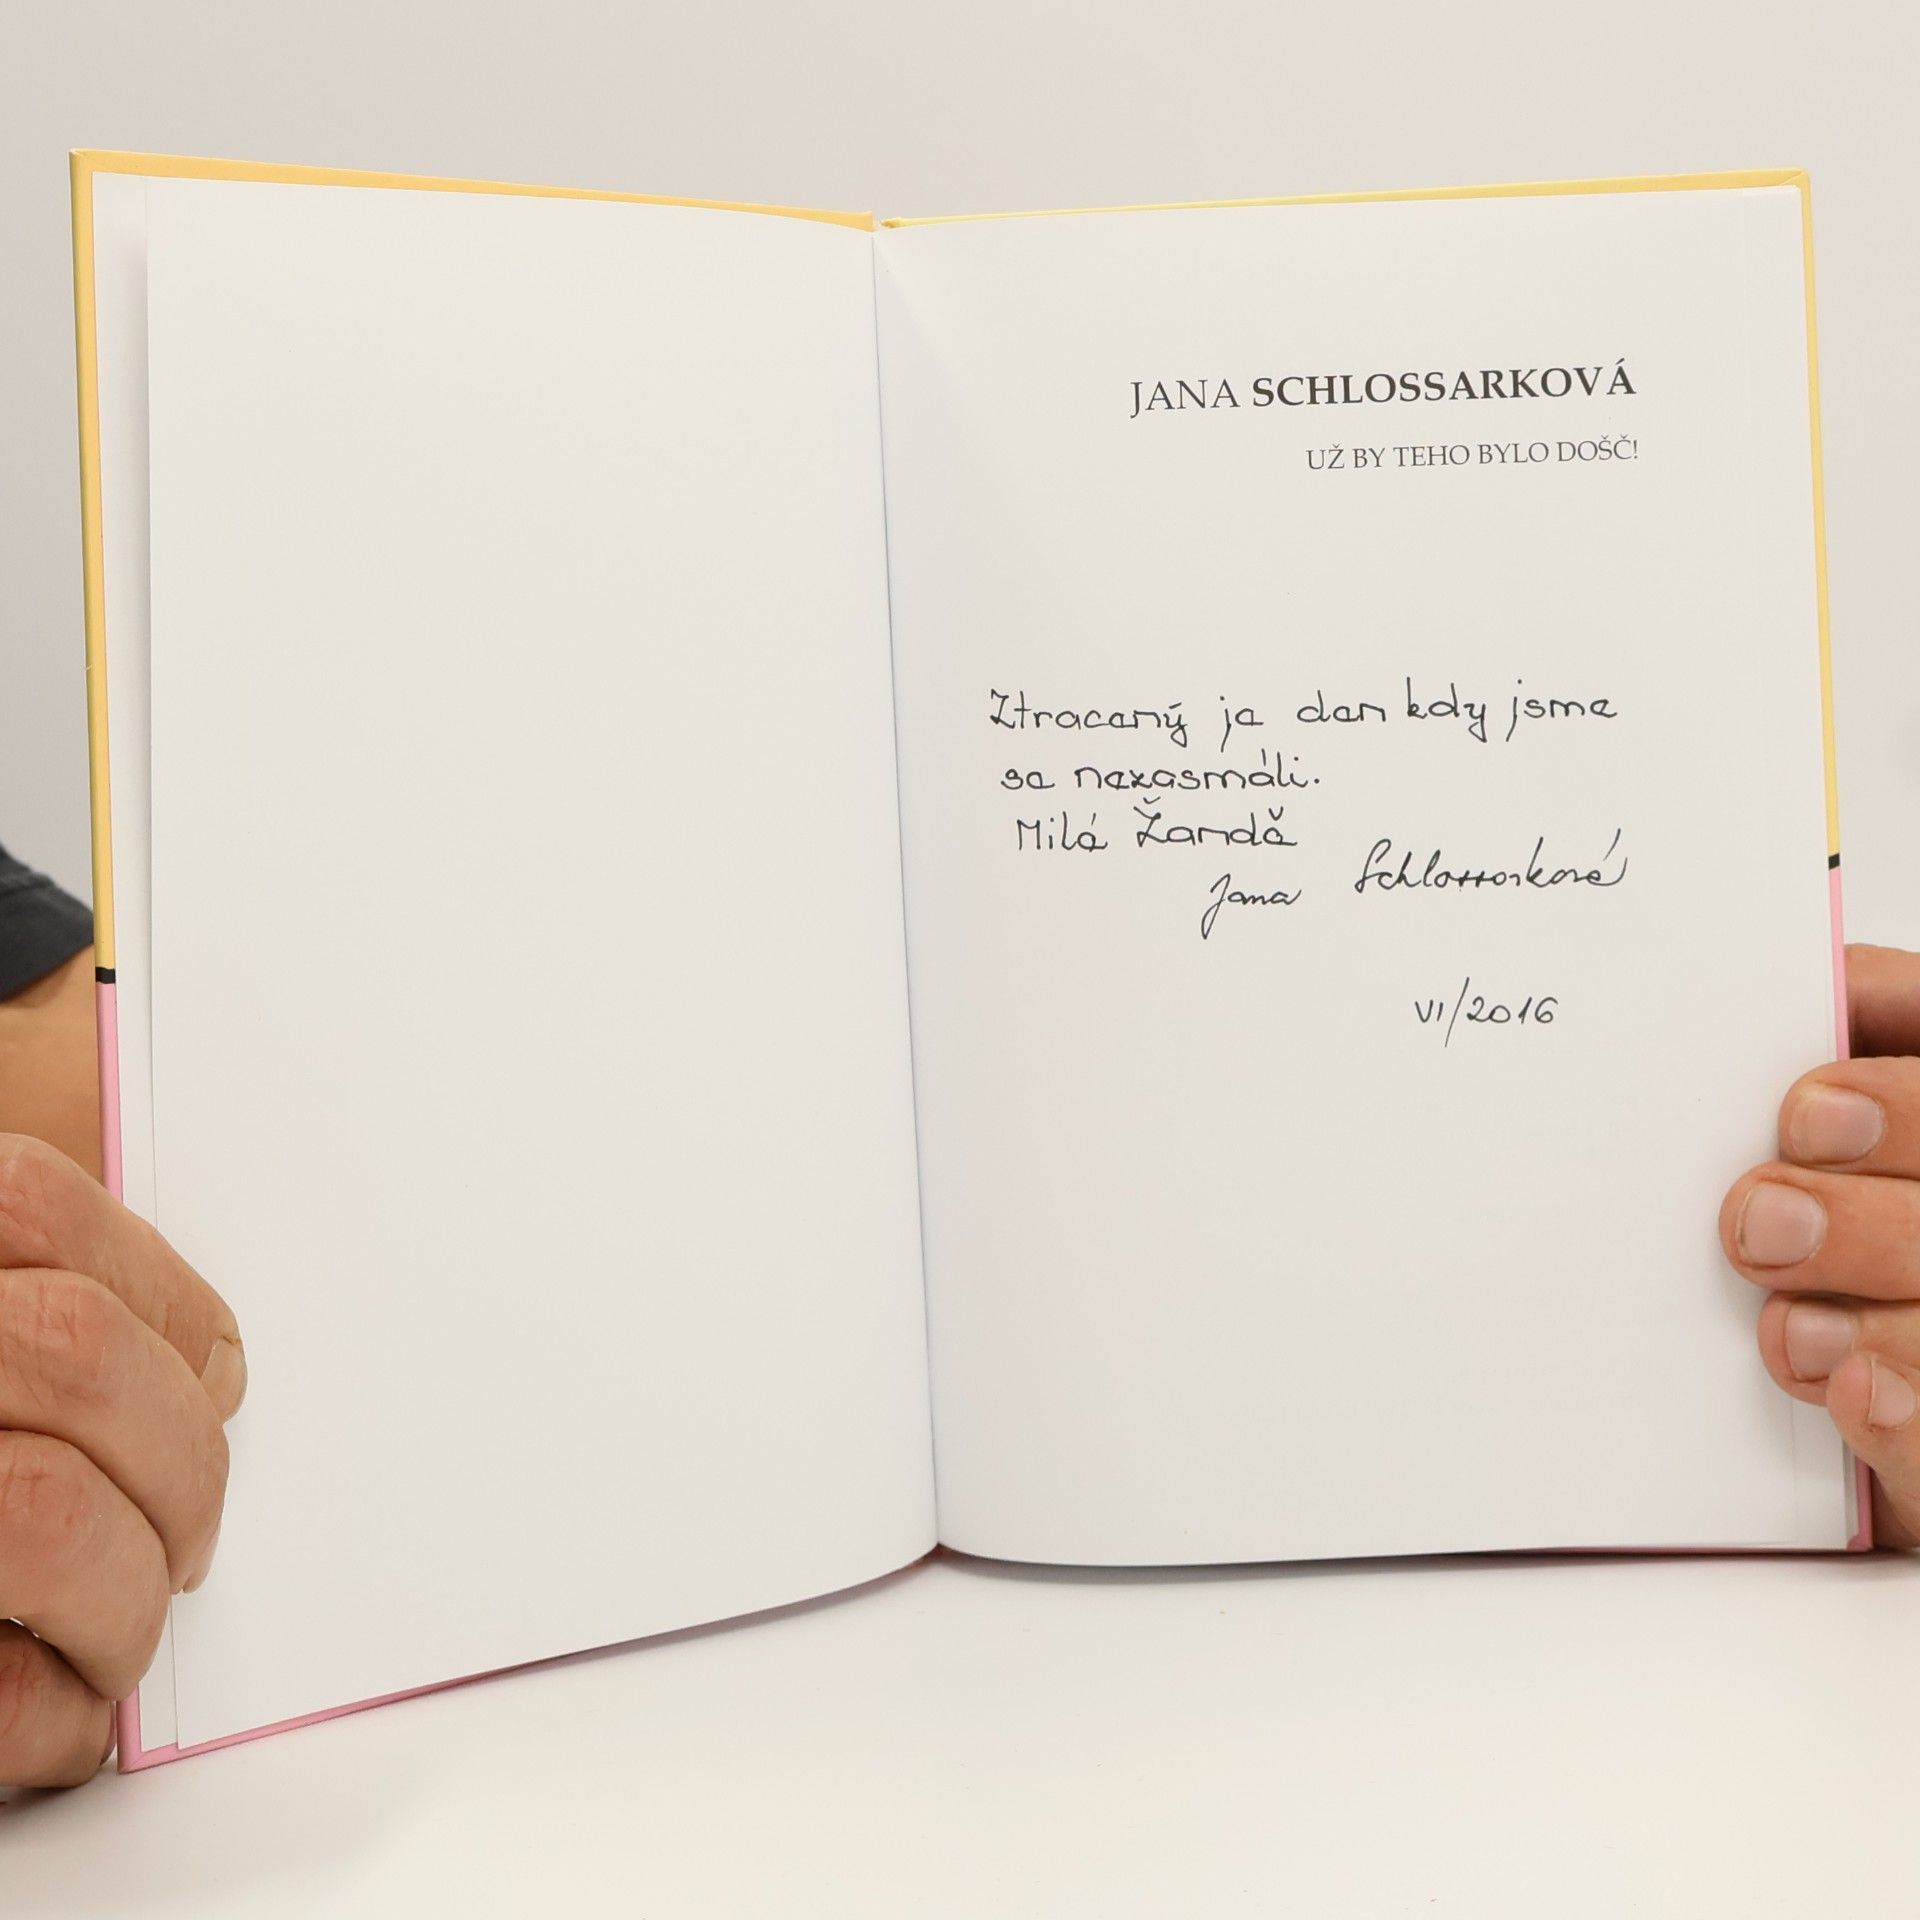 JANA SCHLOSSARKOVÁ
UŽ BY TEHO BYLO DOŠČ!
Ztracený je den kdy jsme
se nezasmáli.
Milé Žandě
Jana Schlossarková
VI/2016